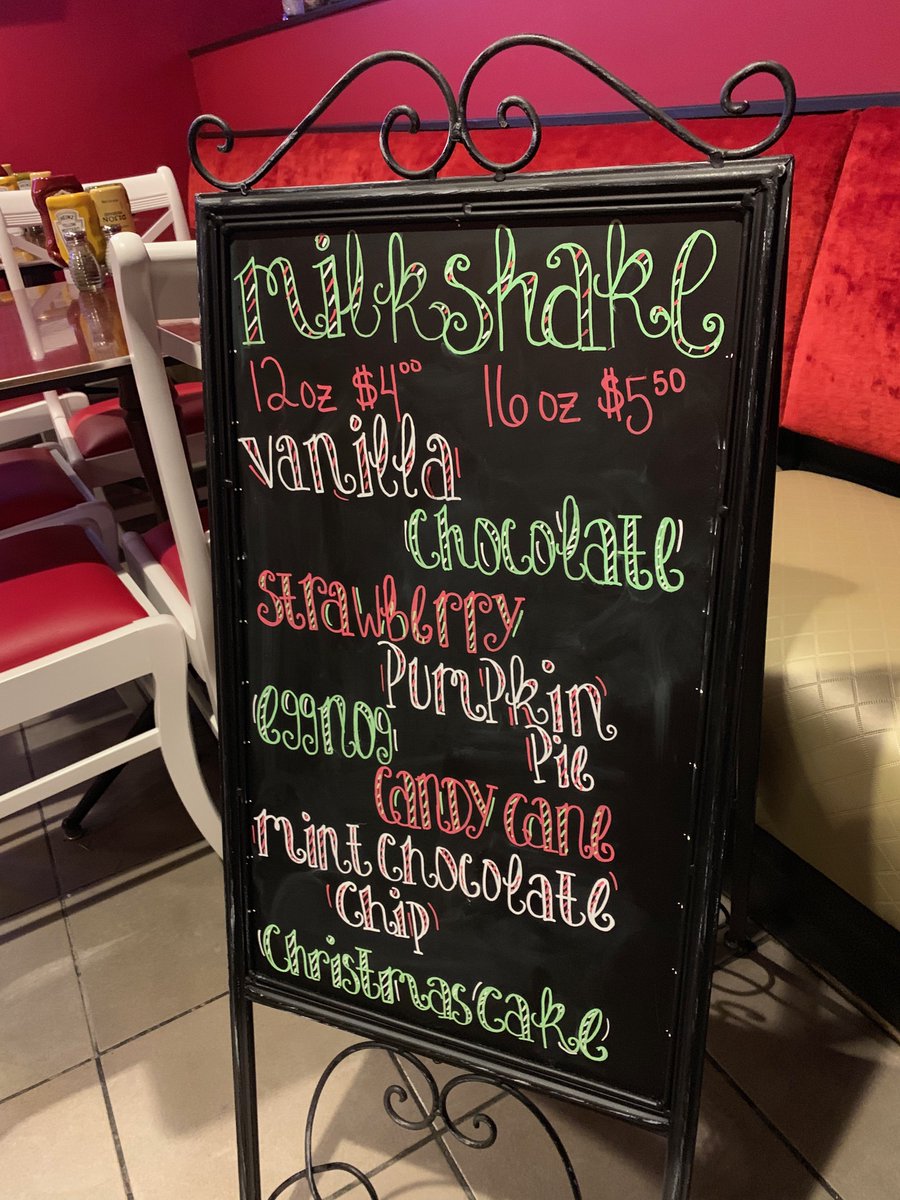 milkshake
12 oz $4.00 16 oz $5.50
vanilla
chocolate
strawberry
Pumpkin
Pie
eggnog
candy cane
mint chocolate
chip
christmas cake
HEINZ